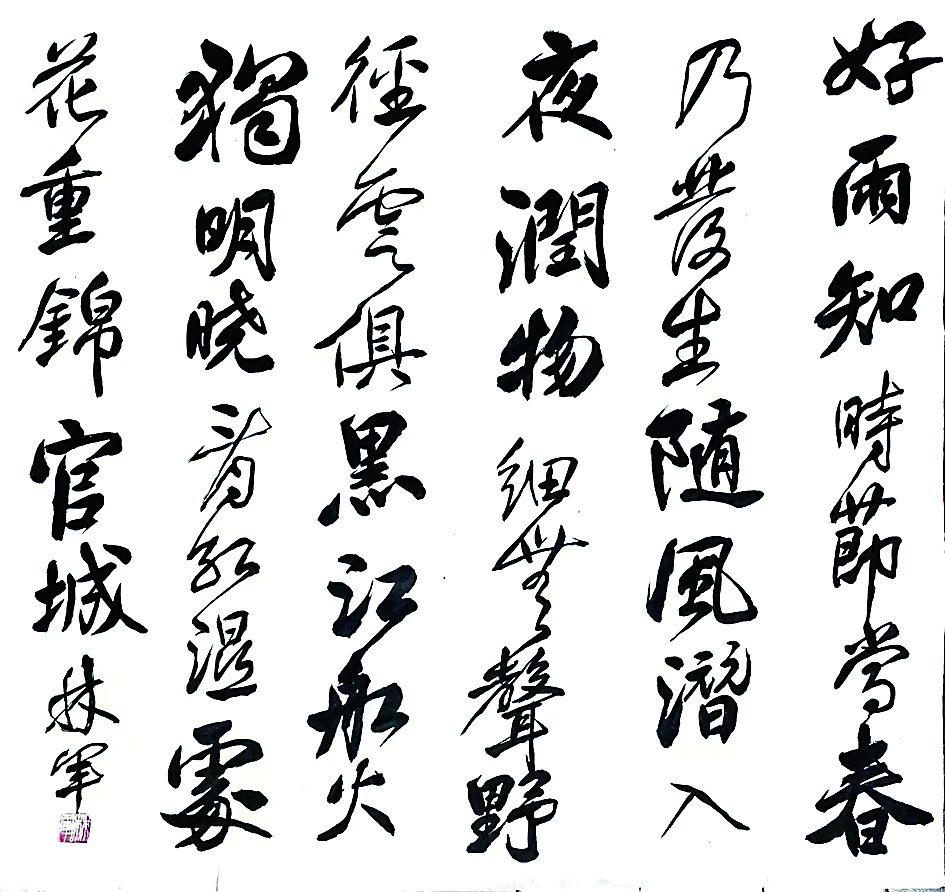 好雨知時節當春
乃發生随風潛入
夜潤物細無聲野
徑雲俱黑江船火
獨明曉看紅濕處
花重錦官城林軍